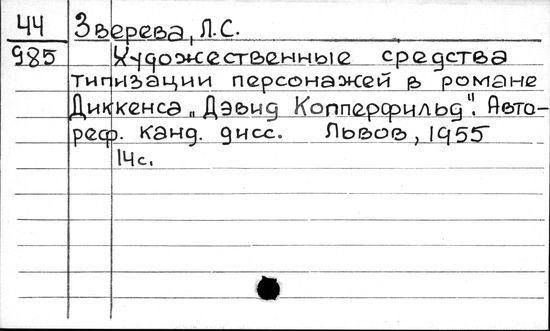 44 Зверева, Л.С.
985 Художественные средства
типизации персонажей в романе
Диккенса „Дэвид Копперфильд". Авто-
реф. канд. дисс. Львов, 1955
14с.